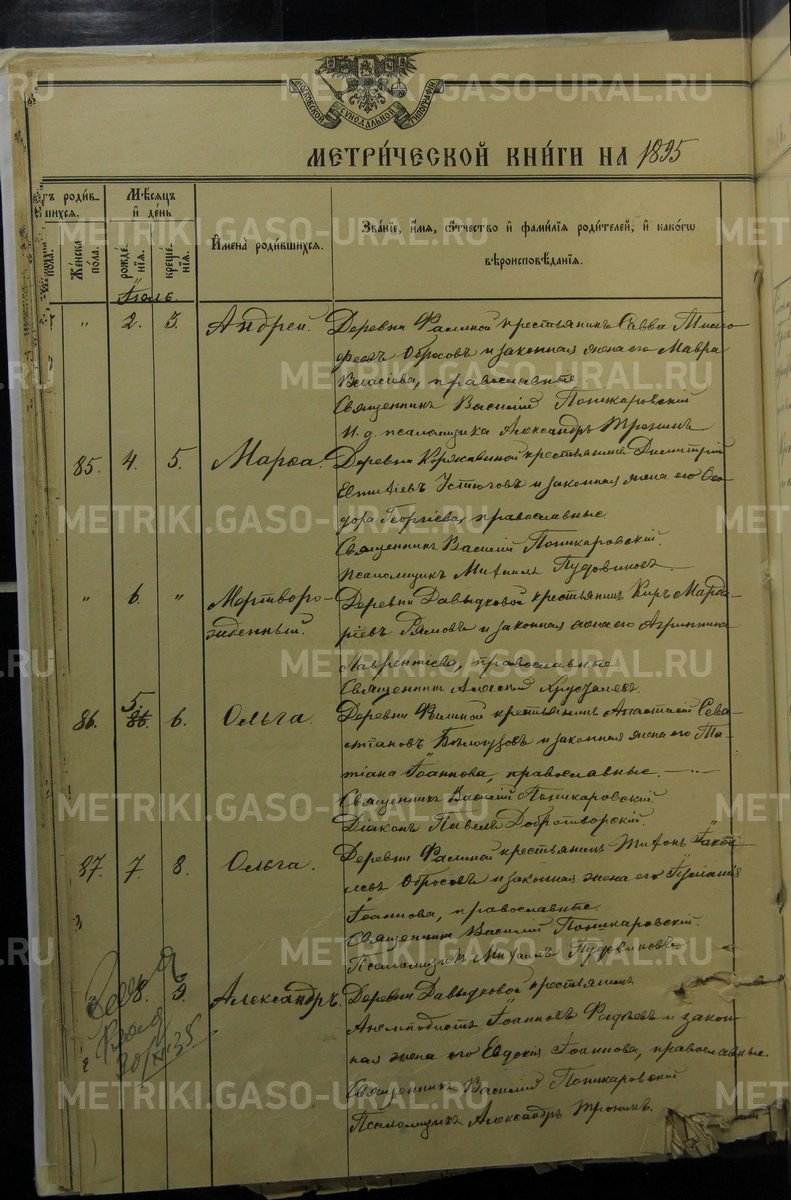 МОСКОВСКОЙ СУНОДАЛЬНОЙ ТИПОГРАФІИ
МЕТРИ́ЧЕСКОЙ КНИ́ГИ НА 1895
родив-
шихся.
Мѣсяцъ
и҆ де́нь
Же́нска
по́ла.
рожде́-
нїѧ.
креще́-
нїѧ.
И҆мена̀ роди́вшихсѧ.
Зва́нїе, и҆́мѧ, ѻ҆́тчество и҆ фами́лїѧ роди́телей, и҆ како́гѡ
вѣроисповѣ́данїѧ.
Іюль.
" 2. 5. Андрей. Деревни Фалиной крестьянинъ Савва Тимо-
феевъ Обросовъ и законная жена его Мавра
Власіева, православные.
Священникъ Василій Понікаровскій
И. д. псаломщика Александръ Тронинъ
85. 4. 5. Марѳа. Деревни Коржавиной крестьянинъ Димитрій
Евѳиміевъ Устюговъ и законная жена его Ѳео-
дора Георгіева, православные.
Священникъ Василій Понікаровскій.
Псаломщикъ Михаилъ Пудовиковъ.
" 6. " Мертворо-
жденный. Деревни Давыдковой крестьянинъ Киръ Марда-
ріевъ и законная жена его Агриппина
Лаврентіева, православные
Священникъ Алексій
86. 5. 86. 6. Ольга. Деревни Фалиной крестьянинъ Анатолій Сева-
стіановъ Бѣлоусовъ и законная жена его Та-
тіана Іоаннова, православные.
Священникъ Василій Понікаровскій
Діаконъ Павелъ Добротворскій
87. 7. 8. Ольга. Деревни Фалиной крестьянинъ Тихонъ Іаков-
левъ Обросовъ и законная жена его Іуліанія
Іоаннова, православные.
Священникъ Василій Понікаровскій.
Псаломщикъ Михаилъ Пудовиковъ.
8. 9. Александръ. Деревни Давыдковой крестьянинъ
Анемподистъ Іоанновъ Фадѣевъ и закон-
ная жена его Евдокія Іоаннова, православные.
Священникъ Василій Понікаровскій
Псаломщикъ Александръ Тронинъ.
METRIKI.GASO-URAL.RU